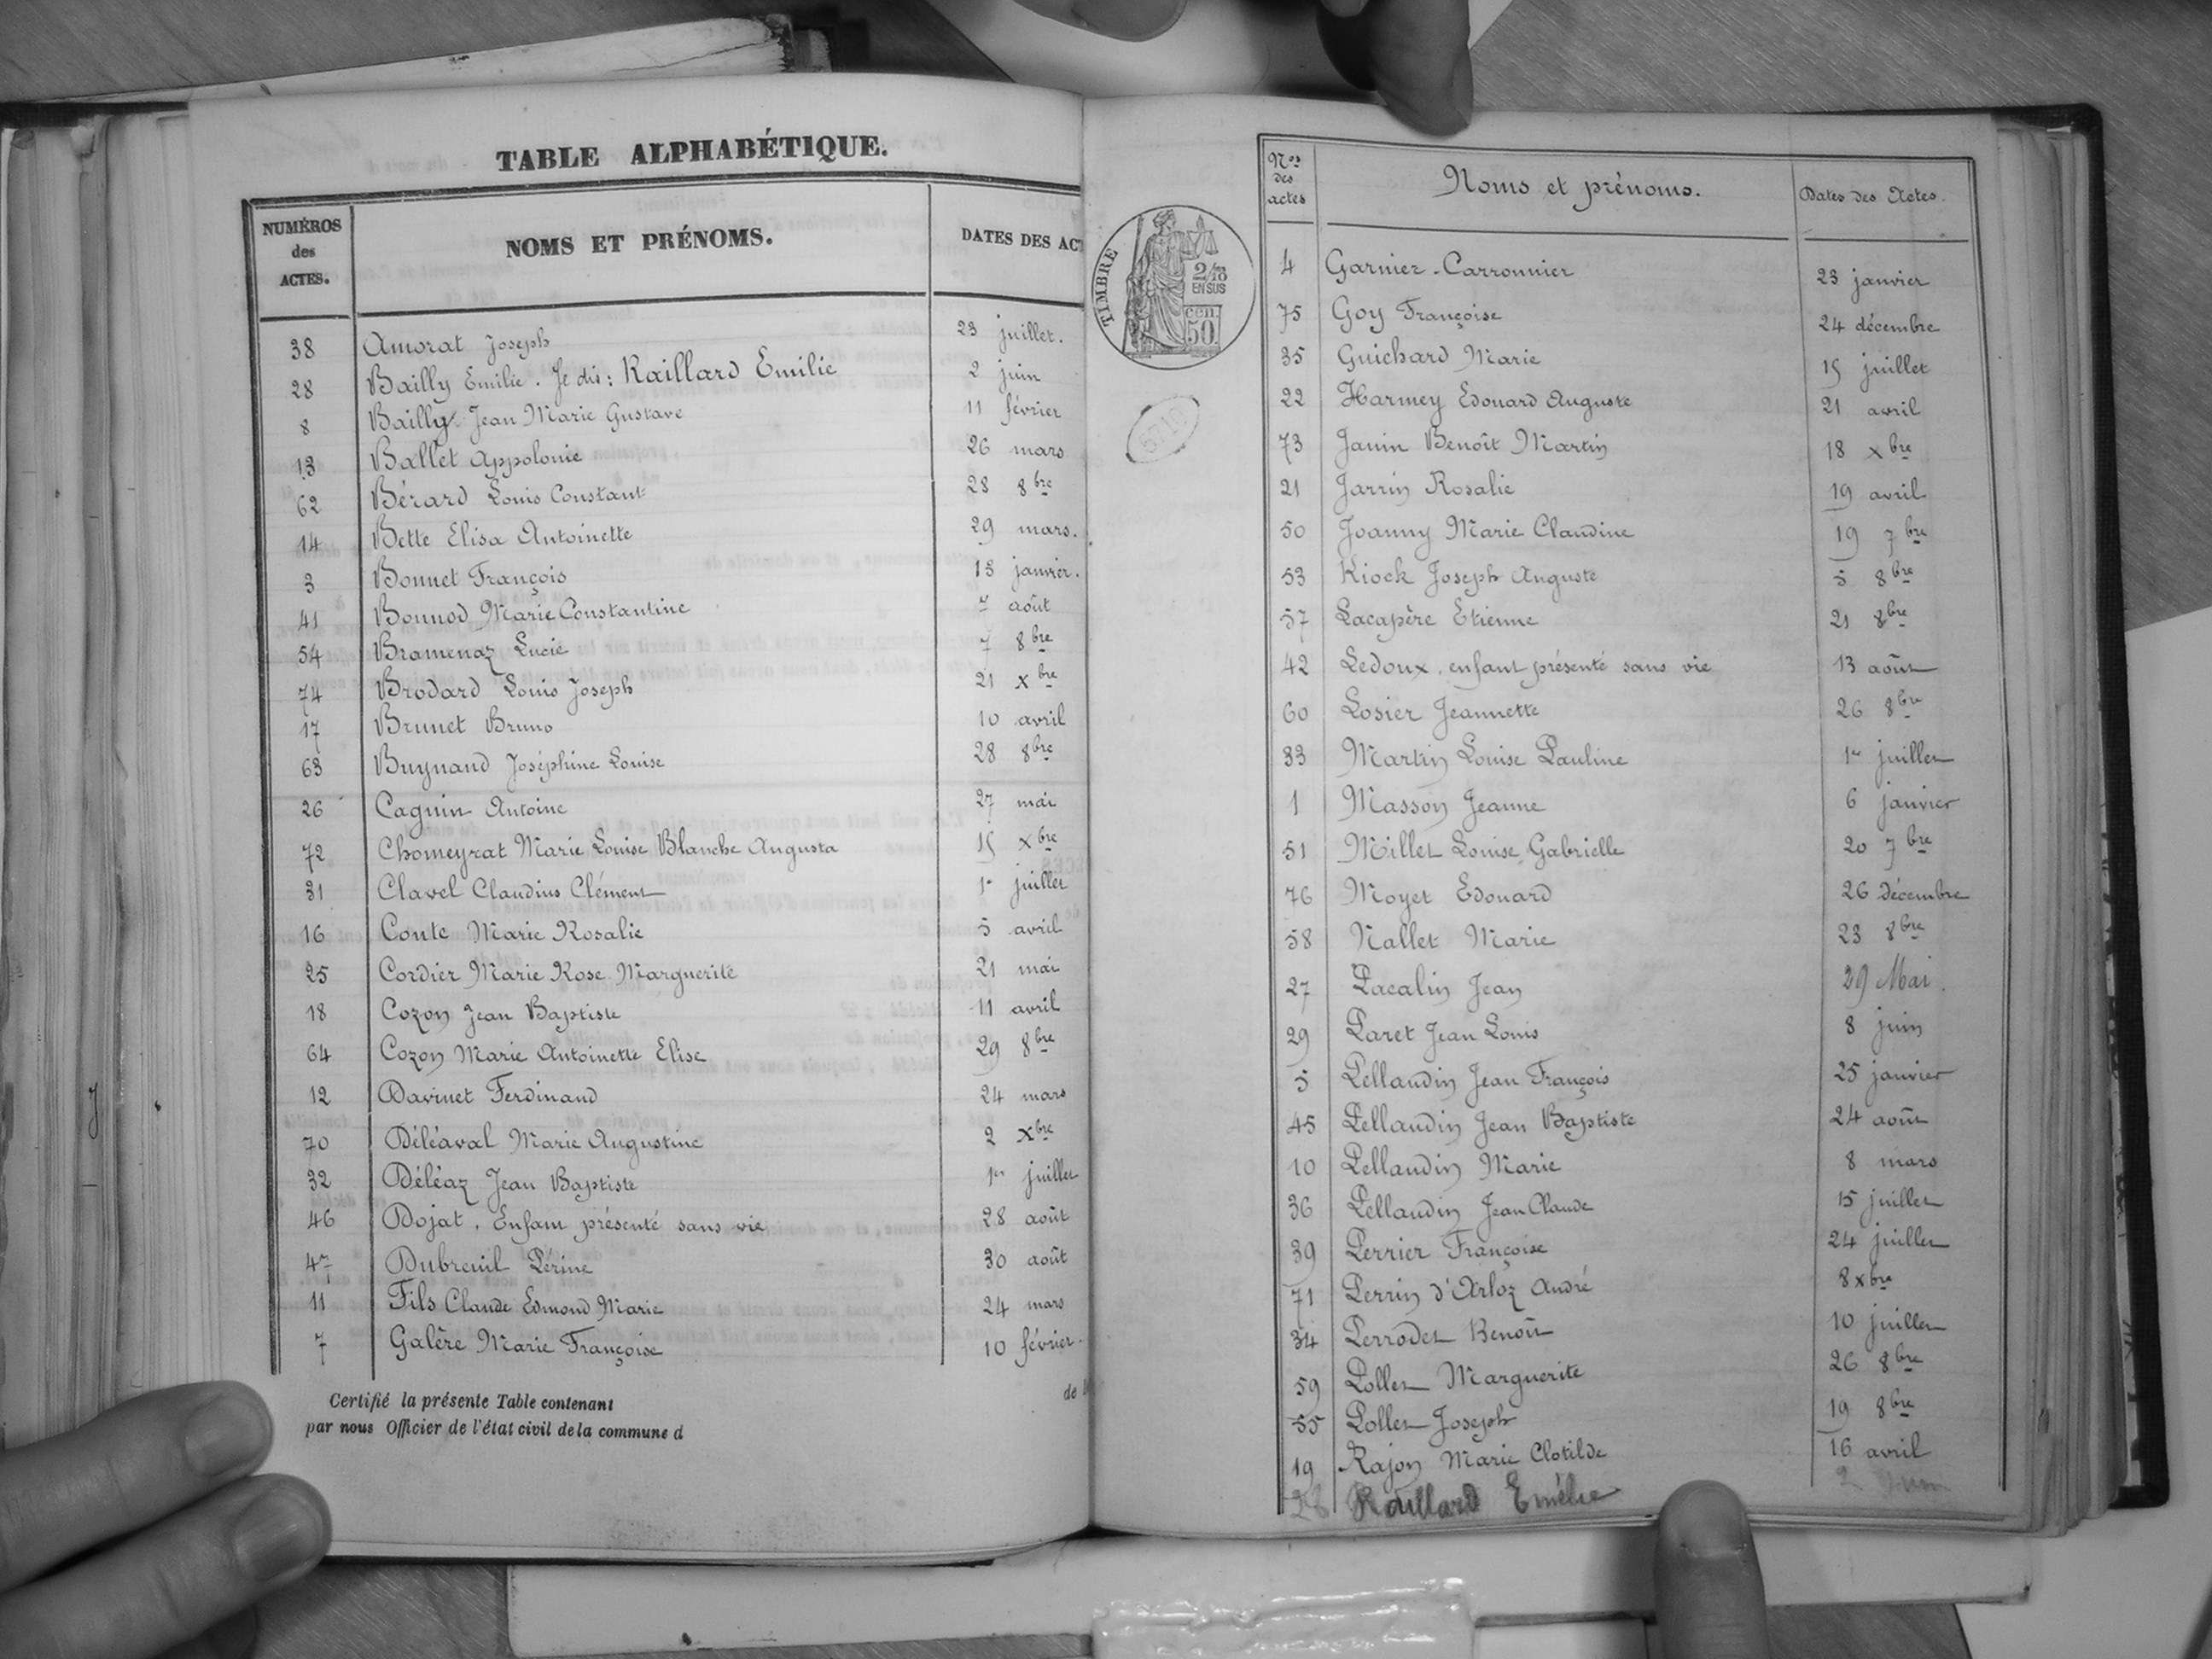 TABLE ALPHABÉTIQUE.
NUMÉROS des ACTES. NOMS ET PRÉNOMS. DATES DES ACT
38 Amorat Joseph 23 juillet.
28 Bailly Emilie. Je dis: Raillard Emilie 2 juin
8 Bailly Jean Marie Gustave 11 février
13 Ballet Appolonie 26 mars
62 Bérard Louis Constant 28 8bre
14 Bette Elisa Antoinette 29 mars.
3 Bonnet François 13 janvier.
41 Bonnod Marie Constantine 7 août
54 Bramenaz Lucie 7 8bre
74 Brodard Louis Joseph 21 xbre
17 Brunet Bruno 10 avril
63 Buynand Joséphine Louise 28 8bre
26 Cagnin Antoine 27 mai
72 Chomeyrat Marie Louise Blanche Augusta 15 xbre
31 Clavel Claudius Clément 1er juillet
16 Conte Marie Rosalie 5 avril
25 Cordier Marie Rose Marguerite 21 mai
18 Cozon Jean Baptiste 11 avril
64 Cozon Marie Antoinette Elise 29 8bre
12 Davinet Ferdinand 24 mars
70 Déléaval Marie Augustine 2 Xbre
32 Déléaz Jean Baptiste 1er juillet
46 Dojat. Enfant présenté sans vie 28 août
47 Dubreuil Périne 30 août
11 Fils Claude Edmond Marie 24 mars
7 Galère Marie Françoise 10 février.
Certifié la présente Table contenant de
par nous Officier de l'état civil de la commune d
TIMBRE
2/10 EN SUS
cen. 50
Nos des actes Noms et prénoms. Dates des Actes.
4 Garnier-Carronnier 23 janvier
75 Goy Françoise 24 décembre
35 Guichard Marie 15 juillet
22 Harmey Edouard Auguste 21 avril
73 Janin Benoît Martin 18 xbre
21 Jarrin Rosalie 19 avril
50 Joanny Marie Claudine 19 7bre
53 Kiock Joseph Auguste 5 8bre
57 Lacapère Etienne 21 8bre
42 Ledoux, enfant présenté sans vie 13 août
60 Losier Jeannette 26 8bre
33 Martin Louise Pauline 1er juillet
1 Masson Jeanne 6 janvier
51 Millet Louise Gabrielle 20 7bre
76 Moyet Edouard 26 décembre
58 Nallet Marie 23 8bre
27 Pacalin Jean 29 Mai.
29 Paret Jean Louis 8 juin
5 Pellaudin Jean François 25 janvier
45 Pellaudin Jean Baptiste 24 août
10 Pellaudin Marie 8 mars
36 Pellaudin Jean Claude 15 juillet
39 Perrier Françoise 24 juillet
71 Perrin d'Arloz André 8 xbre
34 Perrodet Benoît 10 juillet
59 Pollet Marguerite 26 8bre
55 Pollet Joseph 19 8bre
19 Rajon Marie Clotilde 16 avril
28 Raillard Emélie 2 Juin